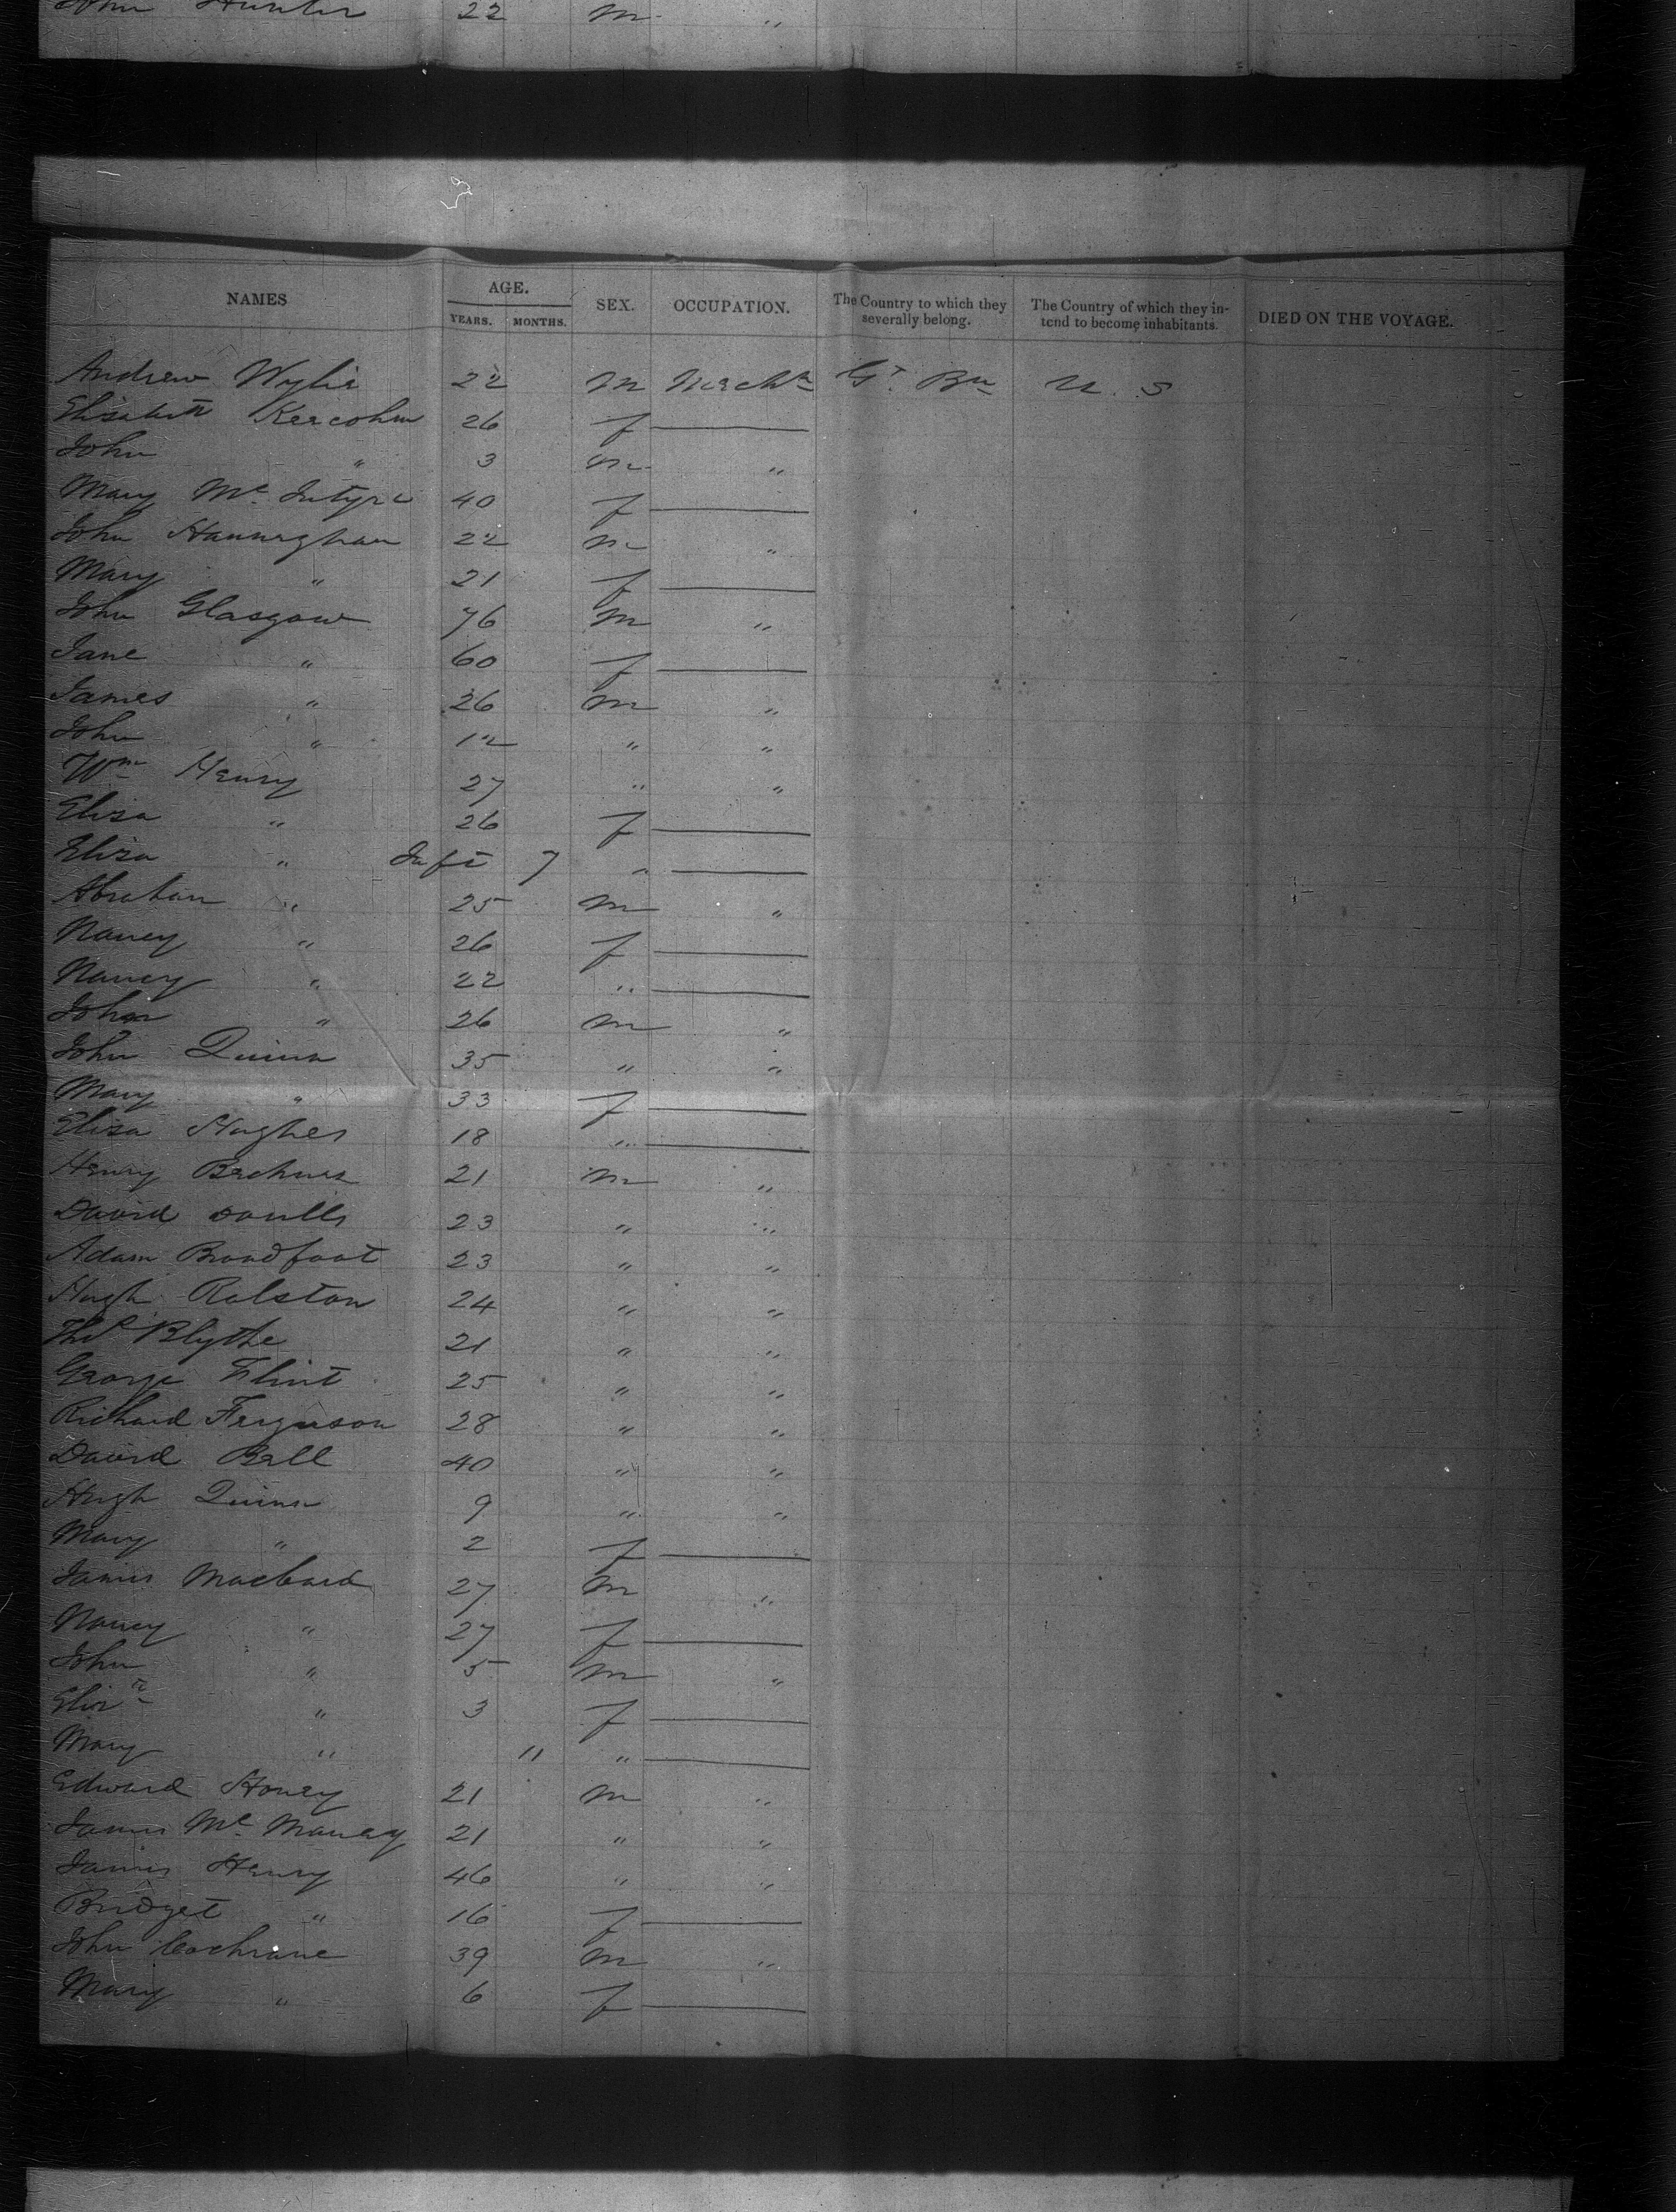 John Hunter 22 m "
NAMES AGE. YEARS. MONTHS. SEX. OCCUPATION. The Country to which they severally belong. The Country of which they intend to become inhabitants. DIED ON THE VOYAGE.
Andrew Wylie 22 m Mecht Gt. Bn U. S
Elisabett 26 f
John " 3 m "
Mary Mc Intyre 40 f
John Hannaghan 22 m "
Mary " 21 f
John Glasgow 76 m "
Jane " 60 f
James " 26 m "
John " 12 " "
Wm Henry 27 " "
Elisa " 26 f
Eliza " Inft 7 "
Abraham " 25 m "
Nancy " 26 f
Nancy " 22 "
John " 26 m "
John Quinn 35 " "
Mary " 33 f
Elisa Hughes 18 "
Henry 21 m "
David 23 " "
Adam Broadfoot 23 " "
Hugh Ralston 24 " "
Thos Blythe 21 " "
George Flint 25 " "
Richard Ferguson 28 " "
David Bell 40 " "
Hugh Quinn 9 " "
Mary " 2 f
James 27 m "
Nancy " 27 f
John " 5 m "
Elizth " 3 f
Mary " 11 "
Edward Honey 21 m "
James Mc 21 " "
James Henry 46 " "
Bridget " 16 f
John Cochrane 39 m "
Mary " 6 f